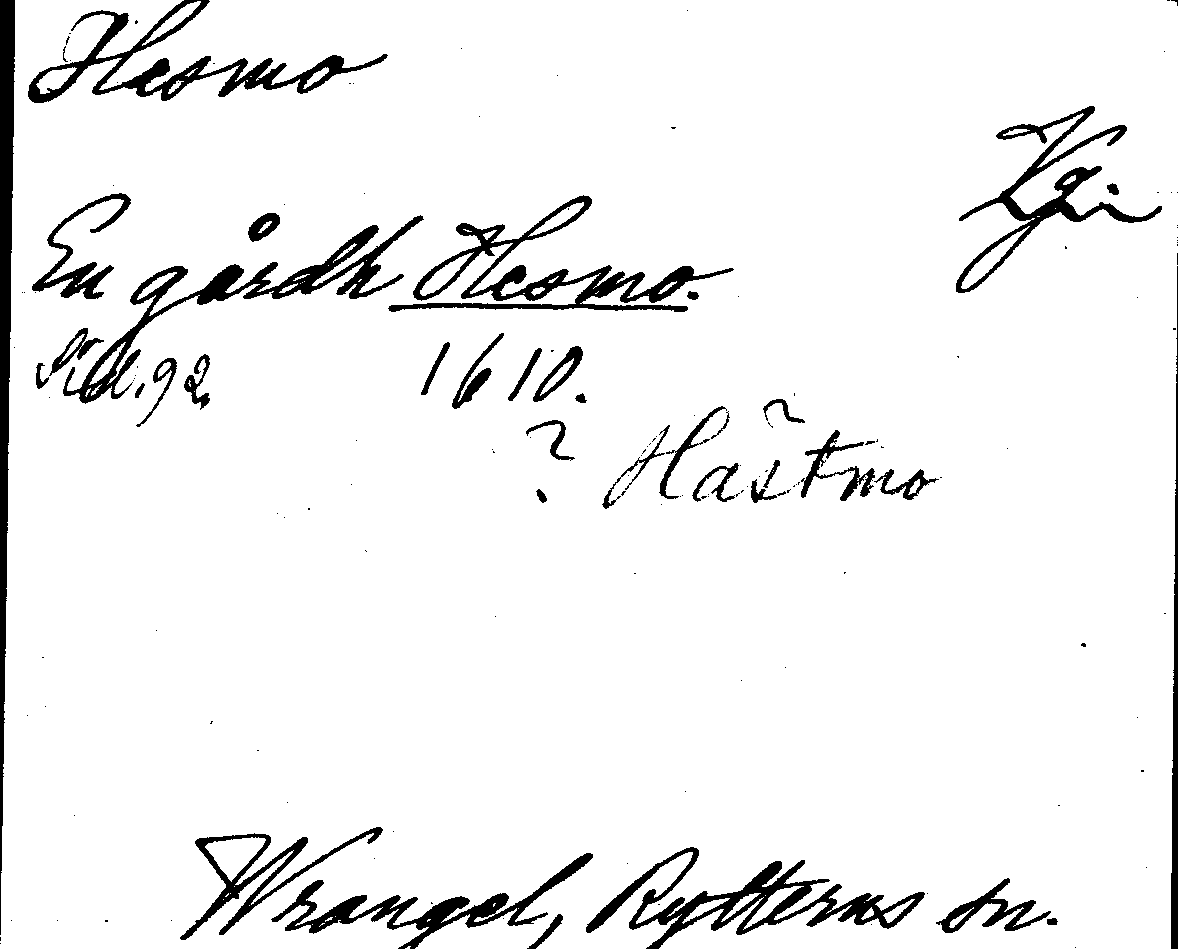 Hesmo
Vgi.
En gårdh Hesmo.
Sid. 92. 1610.
? Hästmo
Wrangel, Rytterns sn.